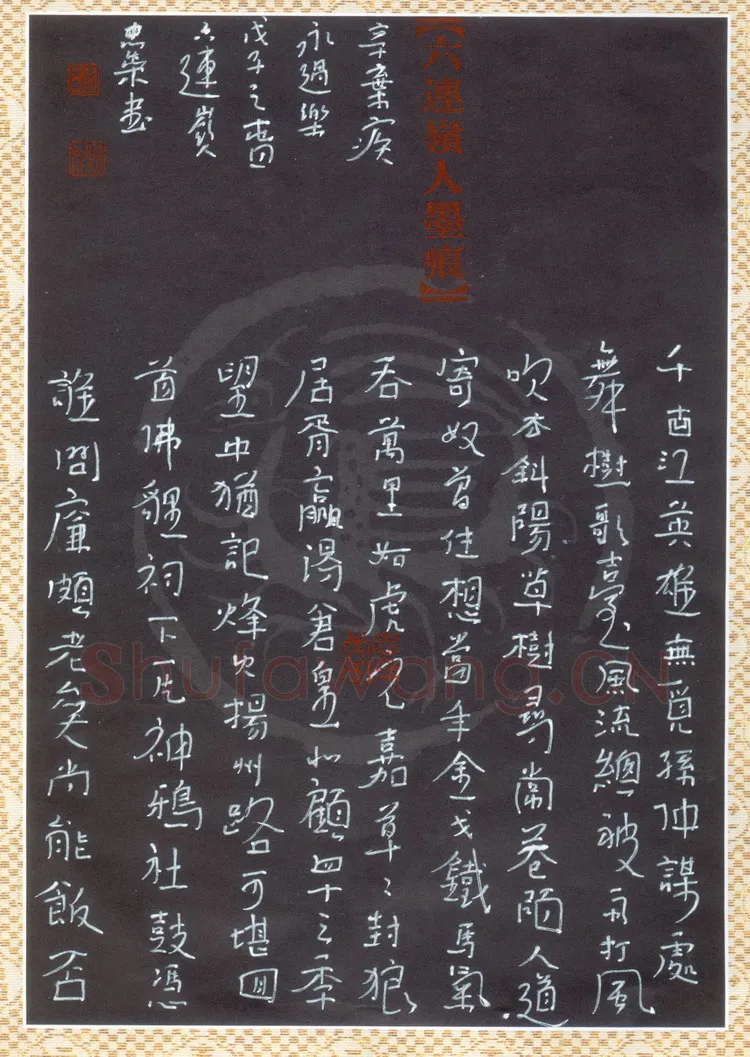 【六連嶺人墨痕】
辛棄疾
永遇樂
戊子之春
六連嶺
書
千古江英雄無覓孫仲謀處
舞樹歌臺風流總被雨打風
吹去斜陽草樹尋常巷陌人道
寄奴曾住想當年金戈鐵馬氣
吞萬里如虎元嘉草〻封狼
居胥贏得倉皇北顧四十三年
望中猶記烽火揚州路可堪回
首佛貍祠下一片神鴉社鼓憑
誰問廉頗老矣尚能飯否
Shufawang.CN